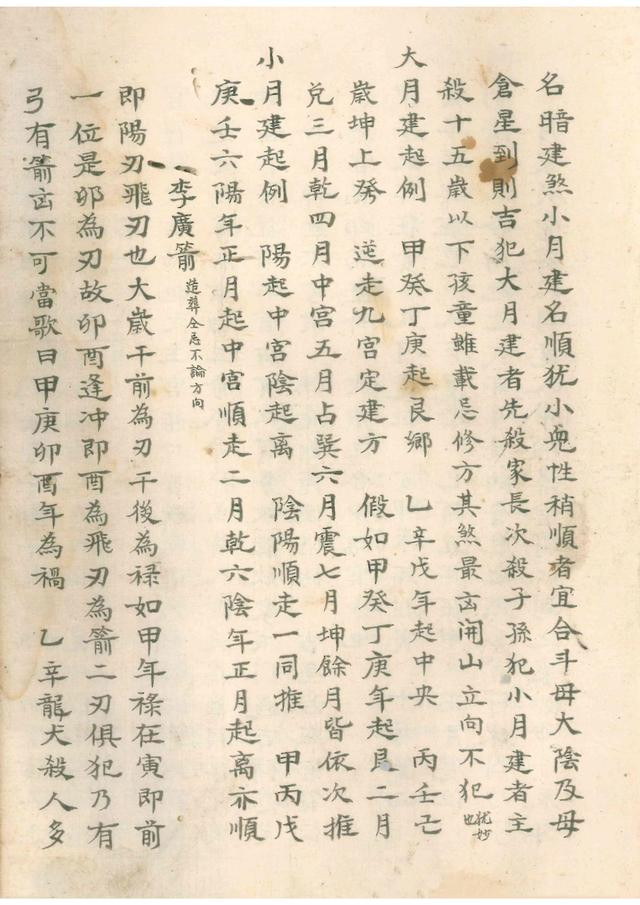 名暗建煞小月建名順犹小兒性稍順者宜合斗母大陰及母
倉星到則吉犯大月建者先殺家長次殺子孫犯小月建者主
殺十五歲以下孩童雖載忌修方其煞最凶開山立向不犯犹妙也
大月建起例 甲癸丁庚起艮鄉 乙辛戊年起中央 丙壬己
歲坤上發 逆走九宮定建方 假如甲癸丁庚年起艮二月
兌三月乾四月中宮五月占巽六月震七月坤餘月皆依次推
小月建起例 陽起中宮陰起離 陰陽順走一同推 甲丙戊
庚壬六陽年正月起中宮順走二月乾六陰年正月起離亦順
李廣箭 造葬全忌不論方向
即陽刃飛刃也大歲干前為刃干後為禄如甲年禄在寅即前
一位是卯為刃故卯酉逢冲即酉為飛刃為箭二刃俱犯乃有
弓有箭凶不可當歌曰甲庚卯酉年為禍 乙辛龍犬殺人多